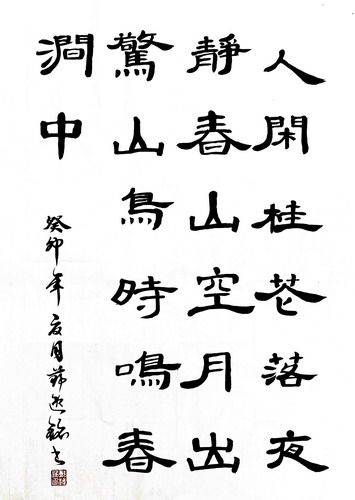 人閑桂花落夜
靜春山空月出
驚山鳥時鳴春
澗中
癸卯年夏月銘书